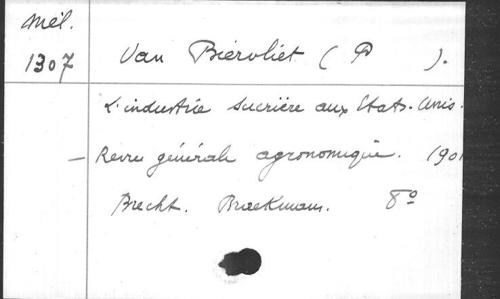 Mél.
1307
Van Biervliet ( P ).
L'industrie sucrière aux Etats-Unis.
— Revue générale agronomique. 1901
Brecht. Braekmans. 8º